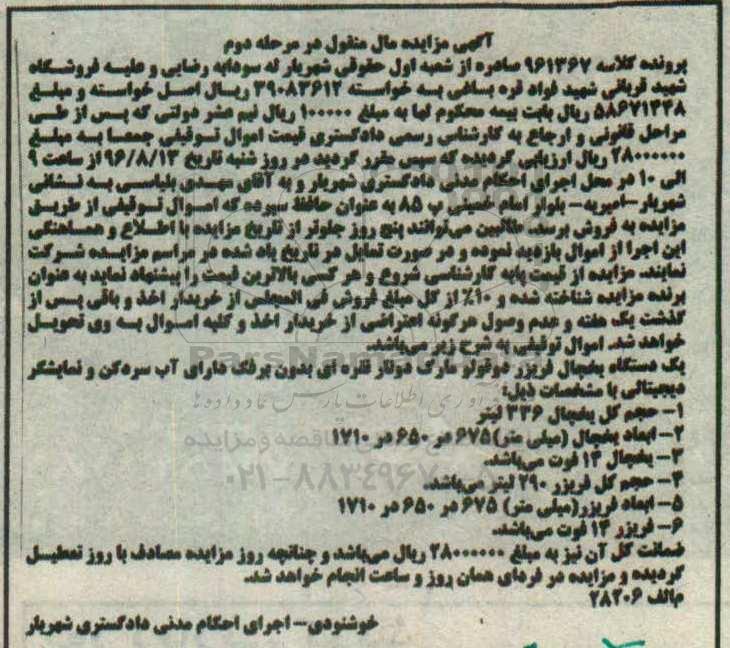 آگهی مزایده مال منقول در مرحله دوم
پرونده کلاسه ۹۶۱۳۶۷ صادره از شعبه اول حقوقی شهریار له سودابه رضایی و علیه فروشگاه
شهید قربانی شهید فواد قره بساقی به خواسته ۳۹۰۸۳۶۱۲ ریال اصل خواسته و مبلغ
۵۸۶۷۱۴۴۸ ریال بابت بیمه محکوم لها به مبلغ ۱۰۰۰۰۰ ریال نیم عشر دولتی که پس از طی
مراحل قانونی و ارجاع به کارشناس رسمی دادگستری قیمت اموال توقیفی جمعا به مبلغ
۲۸۰۰۰۰۰۰ ریال ارزیابی گردیده که سپس مقرر گردید در روز شنبه تاریخ ۹۶/۸/۱۳ از ساعت ۹
الی ۱۰ در محل اجرای احکام مدنی دادگستری شهریار و به آقای مهدی پلیاسی به نشانی
شهریار -امیریه- بلوار امام خمینی پ ۸۵ به عنوان حافظ سپرده که اموال توقیفی از طریق
مزایده به فروش برسد. طالبین می‌توانند پنج روز جلوتر از تاریخ مزایده با اطلاع و هماهنگی
این اجرا از اموال بازدید نموده و در صورت تمایل در تاریخ یاد شده در مراسم مزایده شرکت
نمایند. مزایده از قیمت پایه کارشناسی شروع و هر کسی بالاترین قیمت را پیشنهاد نماید به عنوان
برنده مزایده شناخته شده و ۱۰٪ از کل مبلغ فروش فی المجلس از خریدار اخذ و باقی پس از
گذشت یک هفته و عدم وصول هرگونه اعتراضی از خریدار اخذ و کلیه اموال به وی تحویل
خواهد شد. اموال توقیفی به شرح زیر می‌باشد.
یک دستگاه یخچال فریزر دوقولو مارک دوتار نقره ای بدون برفک دارای آب سردکن و نمایشگر
دیجیتالی با مشخصات ذیل:
۱- حجم کل یخچال ۳۳۶ لیتر
۲- ابعاد یخچال (میلی متر) ۶۷۵ در ۶۵۰ در ۱۷۱۰
۳- یخچال ۱۴ فوت می‌باشد.
۴- حجم کل فریزر ۲۹۰ لیتر می‌باشد.
۵- ابعاد فریزر (میلی متر) ۶۷۵ در ۶۵۰ در ۱۷۱۰
۶- فریزر ۱۴ فوت می‌باشد.
ضمانت کل آن نیز به مبلغ ۲۸۰۰۰۰۰۰ ریال می‌باشد و چنانچه روز مزایده مصادف با روز تعطیل
گردیده و مزایده در فردای همان روز و ساعت انجام خواهد شد.
م/الف ۲۸۲۰۶
خوشنودی- اجرای احکام مدنی دادگستری شهریار